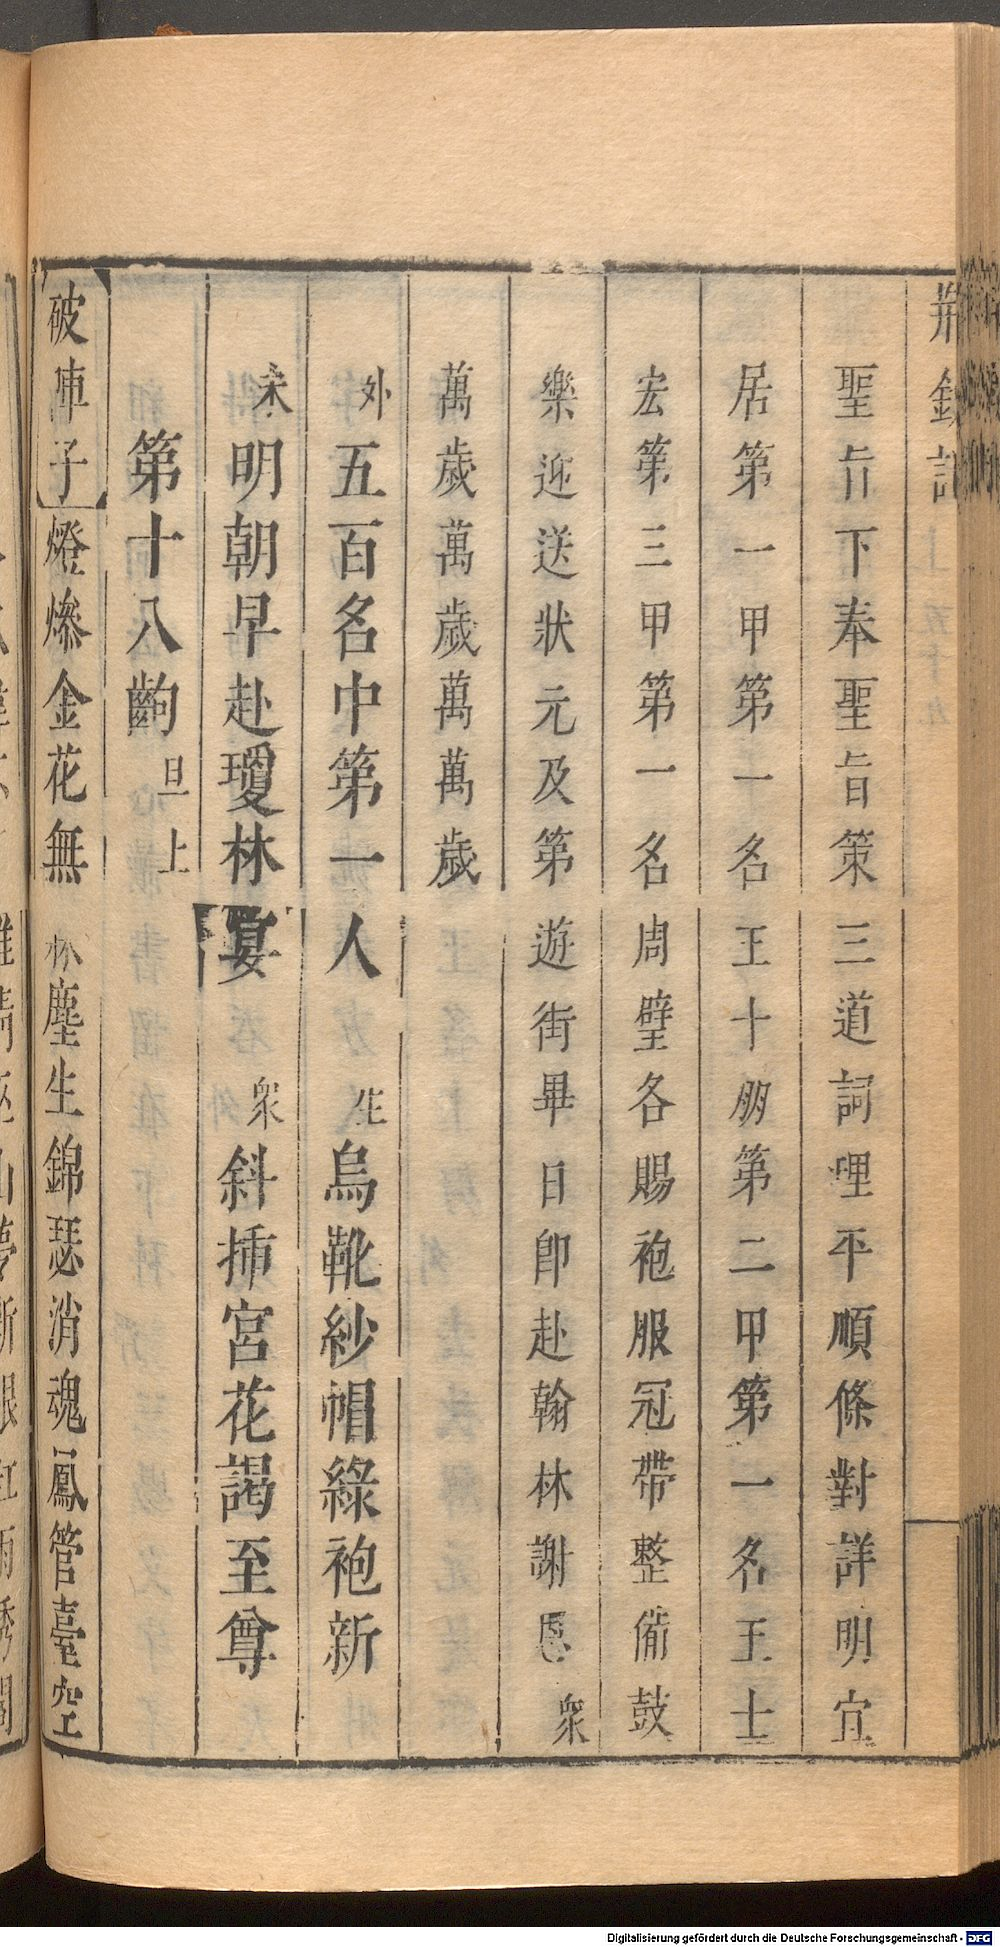 荆釵記
聖旨下奉聖旨策三道詞理平順條對詳明宜
居第一甲第一名王十朋第二甲第一名王士
宏第三甲第一名周璧各賜袍服冠帶整備鼓
樂迎送狀元及第遊街畢日卽赴翰林謝恩 衆
萬歲萬歲萬萬歲
外五百名中第一人 生烏靴紗帽綠袍新
末明朝早赴瓊林宴 衆斜揷宮花謁至尊
第十八齣 旦上
破陣子 燈燦金花無 塵生錦瑟消魂鳳管臺空
Digitalisierung gefördert durch die Deutsche Forschungsgemeinschaft - DFG